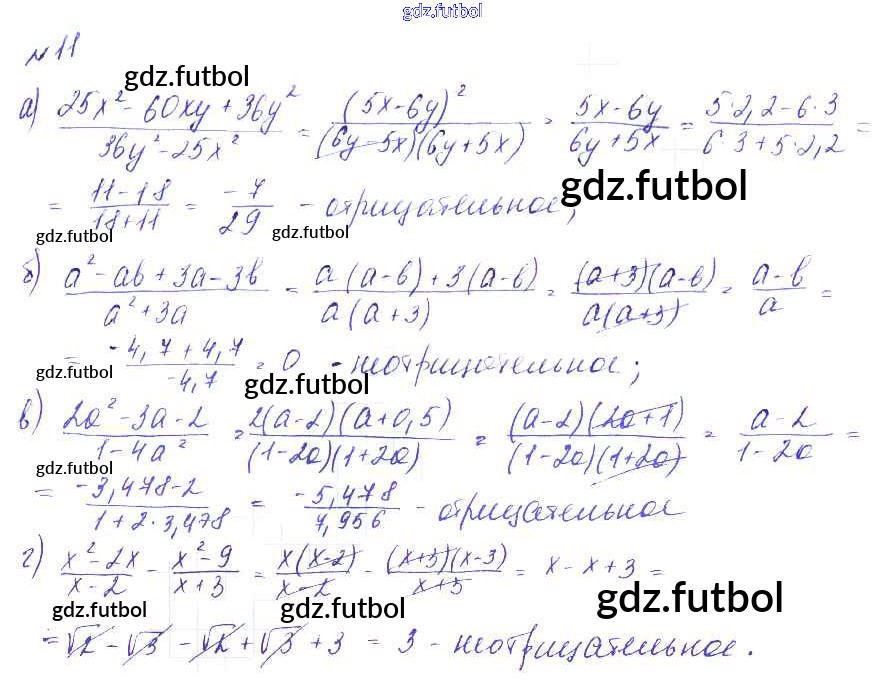 gdz.futbol
№11
gdz.futbol
а) (25x² - 60xy + 36y²)/(36y² - 25x²) = (5x-6y)²/((6y-5x)(6y+5x)) = (5x-6y)/(6y+5x) = (5·2,2-6·3)/(6·3+5·2,2) =
gdz.futbol
= (11-18)/(18+11) = -7/29 - отрицательное;
gdz.futbol gdz.futbol
б) (a² - ab + 3a - 3b)/(a² + 3a) = (a(a-b)+3(a-b))/(a(a+3)) = ((a+3)(a-b))/(a(a+3)) = (a-b)/a =
= (-4,7+4,7)/(-4,7) = 0 - неотрицательное;
gdz.futbol gdz.futbol
в) (2a² - 3a - 2)/(1-4a²) = (2(a-2)(a+0,5))/((1-2a)(1+2a)) = ((a-2)(2a+1))/((1-2a)(1+2a)) = (a-2)/(1-2a) =
gdz.futbol
= (-3,478-2)/(1+2·3,478) = (-5,478)/(7,956) - отрицательное
г) (x²-2x)/(x-2) - (x²-9)/(x+3) = (x(x-2))/(x-2) - ((x+3)(x-3))/(x+3) = x - x + 3 =
gdz.futbol gdz.futbol gdz.futbol
= √2 - √3 - √2 + √3 + 3 = 3 - неотрицательное.